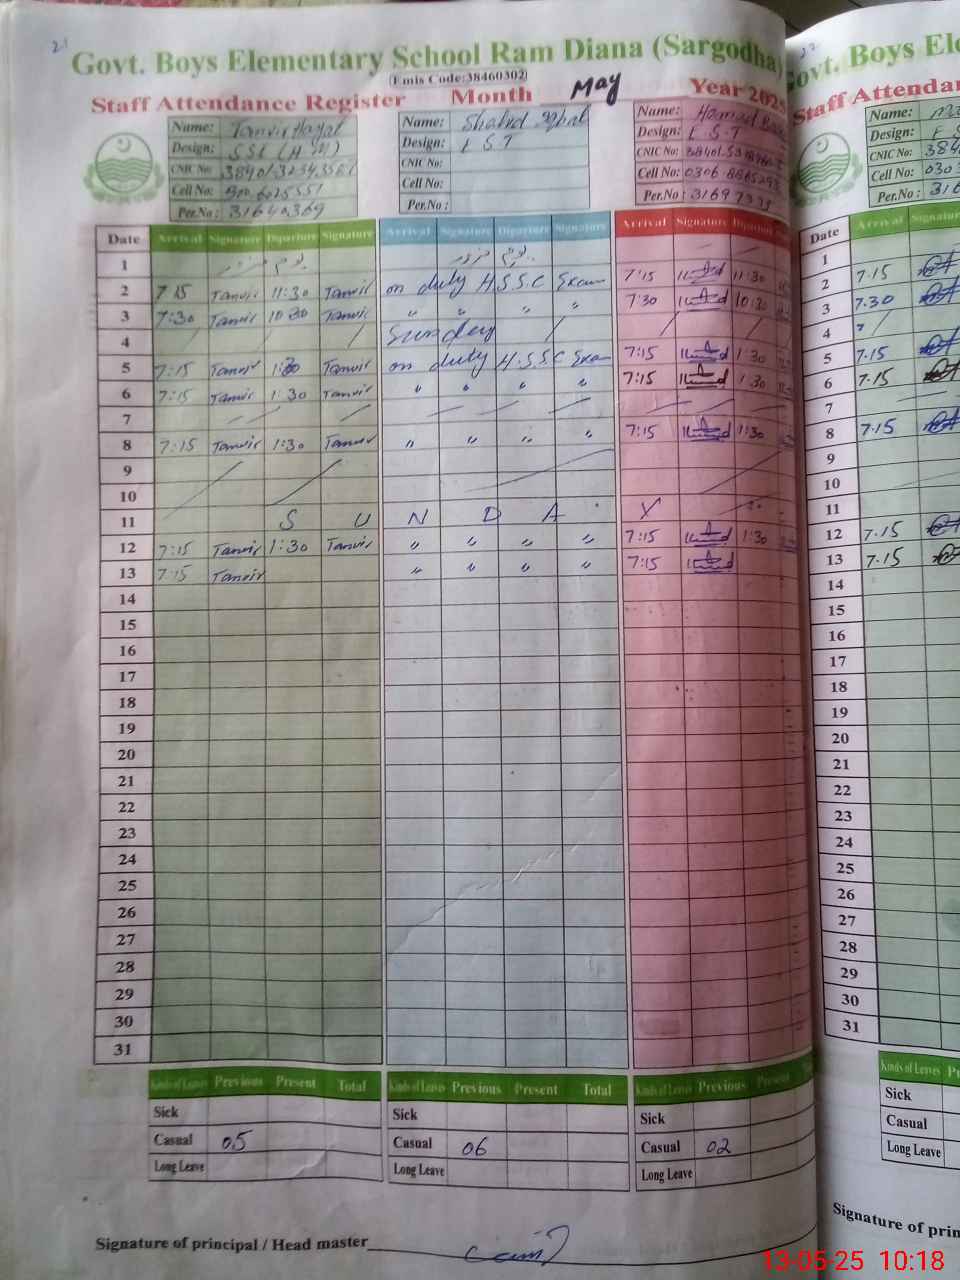 21
Govt. Boys Elementary School Ram Diana (Sargodha)
(Emis Code:38460302)
Staff Attendance Register Month May Year 2025
Name: Tanvir Hayat
Design: SSE
CNIC No:
Cell No:
Per.No : 31640369
Name: Shahid Iqbal
Design: E S T
CNIC No:
Cell No:
Per.No :
Name: Hamad
Design: E S T
CNIC No:
Cell No:
Per.No :
Date Arrival Signature Diparture Signature Arrival Signature Diparture Signature Arrival Signature Diparture
1 یوم مزدور یوم مزدور
2 7:15 Tanvir 11:30 Tanvir on duty H.S.S.C Exam 7:15 11:30
3 7:30 Tanvir 10:30 Tanvir " " " " 7:30 10:30
4 Sunday
5 7:15 Tanvir 1:30 Tanvir on duty H.S.S.C Exam 7:15 1:30
6 7:15 Tanvir 1:30 Tanvir " " " " 7:15 1:30
7
8 7:15 Tanvir 1:30 Tanvir " " " " 7:15 1:30
9
10
11 S U N D A Y
12 7:15 Tanvir 1:30 Tanvir " " " " 7:15 1:30
13 7:15 Tanvir " " " " 7:15
14
15
16
17
18
19
20
21
22
23
24
25
26
27
28
29
30
31
Kinds of Leaves Previous Present Total Kinds of Leaves Previous Present Total Kinds of Leaves Previous Present
Sick Sick Sick
Casual 05 Casual 06 Casual 02
Long Leave Long Leave Long Leave
Signature of principal / Head master
22
Govt. Boys
Staff
Name:
Design:
CNIC No:
Cell No:
Per.No :
Date Arrival Signature
1
2 7.15
3 7.30
4
5 7.15
6 7.15
7
8 7.15
9
10
11
12 7.15
13 7.15
14
15
16
17
18
19
20
21
22
23
24
25
26
27
28
29
30
31
Kinds of Leaves
Sick
Casual
Long Leave
Signature of
13-05-25 10:18